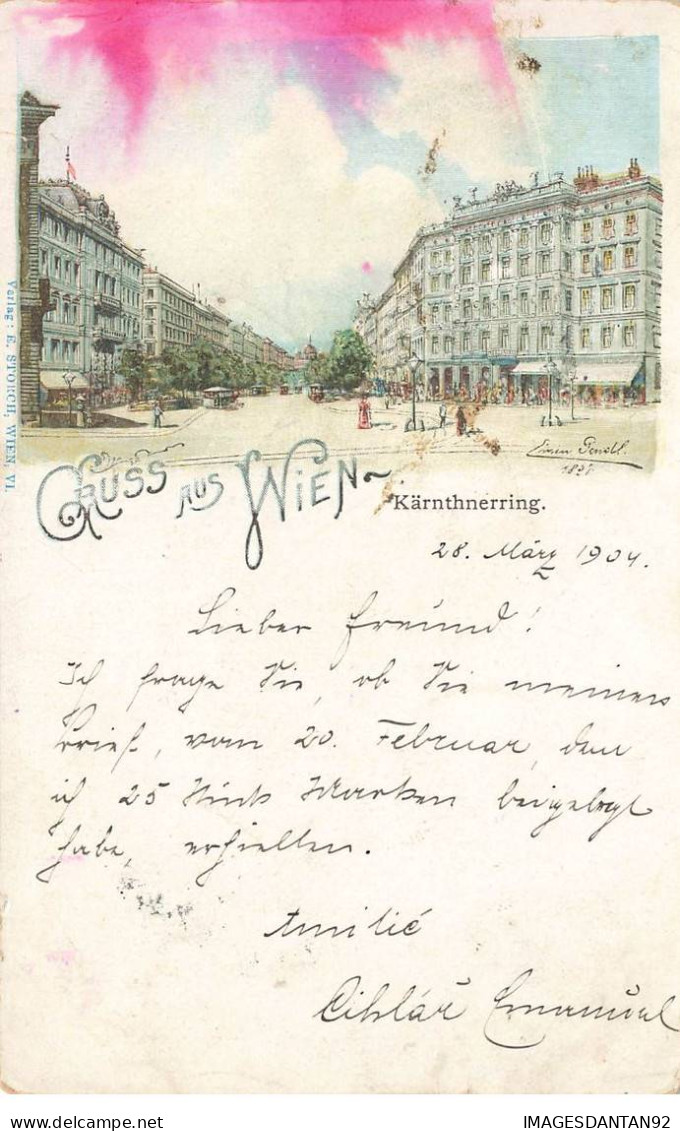 Verlag: E. STORCH, WIEN, VI.
1898
GRUSS AUS WIEN
Kärnthnerring.
28. März 1904.
Lieber Freund!
Ich frage Sie, ob Sie meinen
Brief, vom 20. Februar, dem
ich 25 Stück Marken beigelegt
habe, erhielten.
Cihlář Emanuel
IMAGESDANTAN92